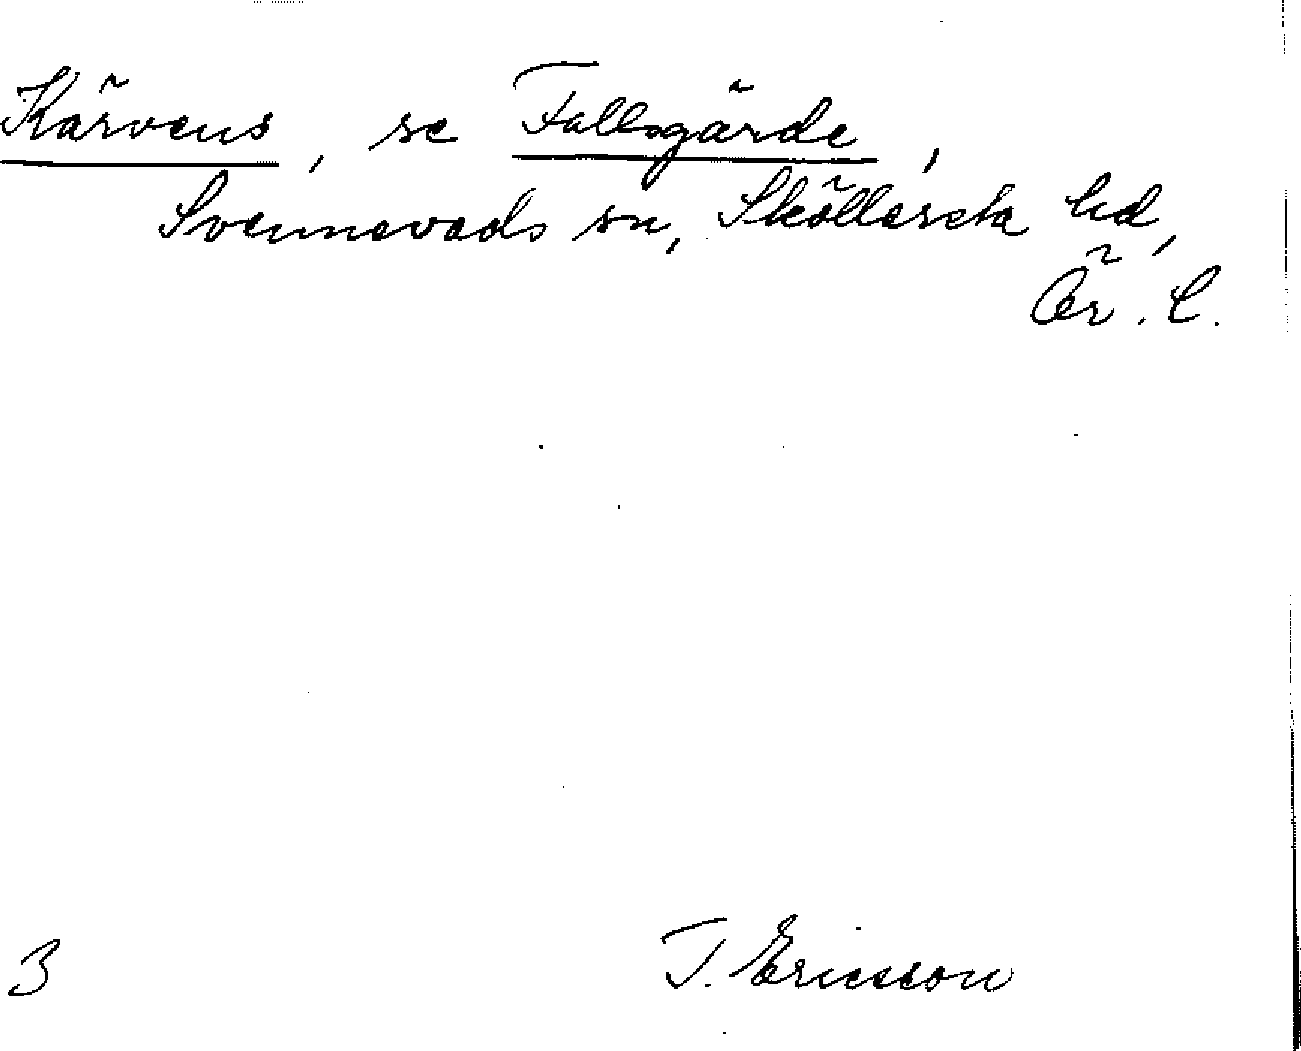 Kärvens, se Fallsgärde,
Svennevads sn, Sköllersta hd,
Ör. l.
3 T. Ericsson